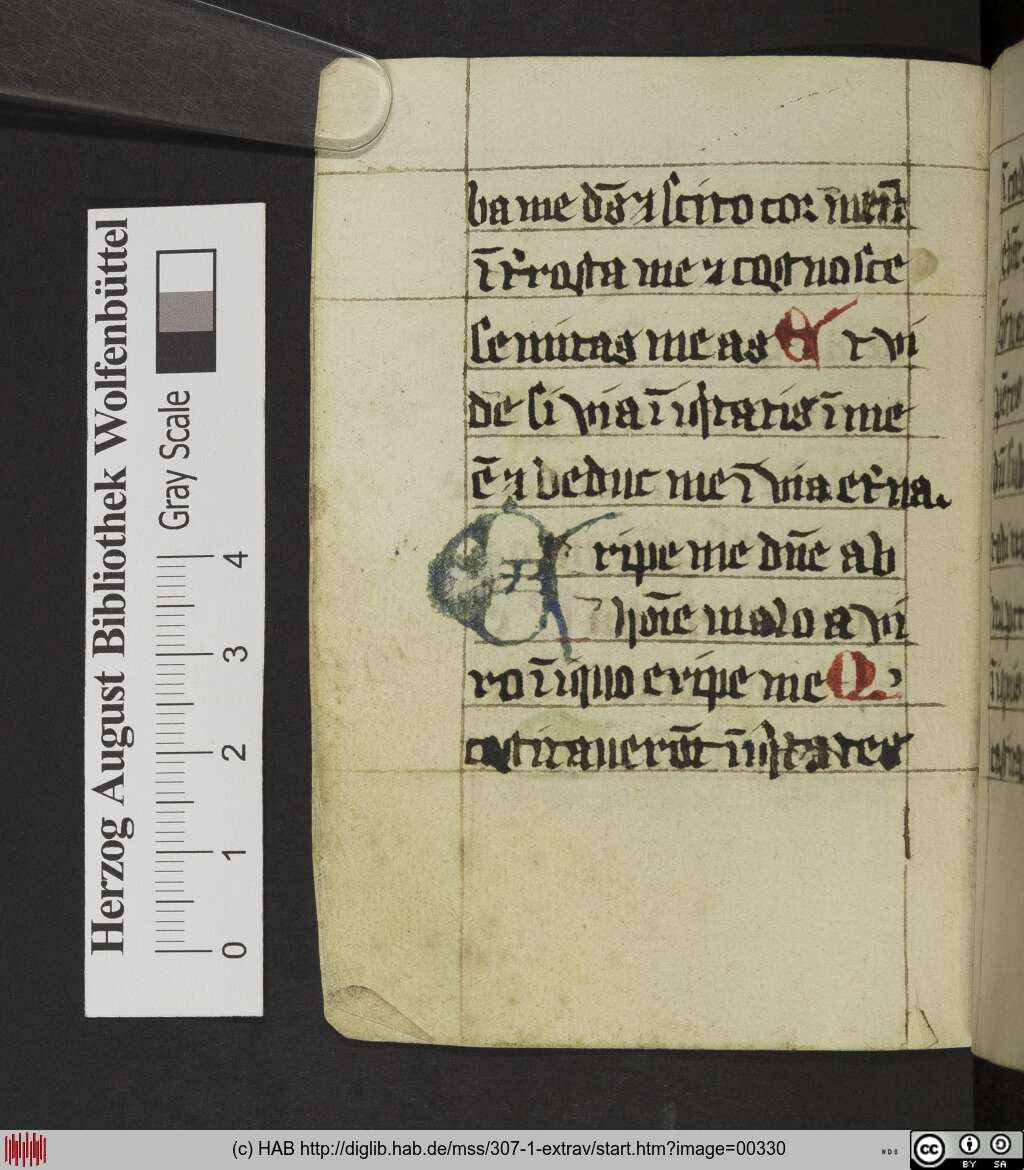 ba me ds̄ ⁊ scito cor meū
īt̄roga me ⁊ cognosce
semitas meas Et vi
de si via īiqtatis ī me
ē ⁊ deduc me ī via et̄na.
Eripe me dn̄e ab
hoīe malo a vi
ro īiquo eripe me Q
cogitauerūt īiqtates
Herzog August Bibliothek Wolfenbüttel
Gray Scale
0 1 2 3 4
(c) HAB http://diglib.hab.de/mss/307-1-extrav/start.htm?image=00330
WDB
cc BY SA